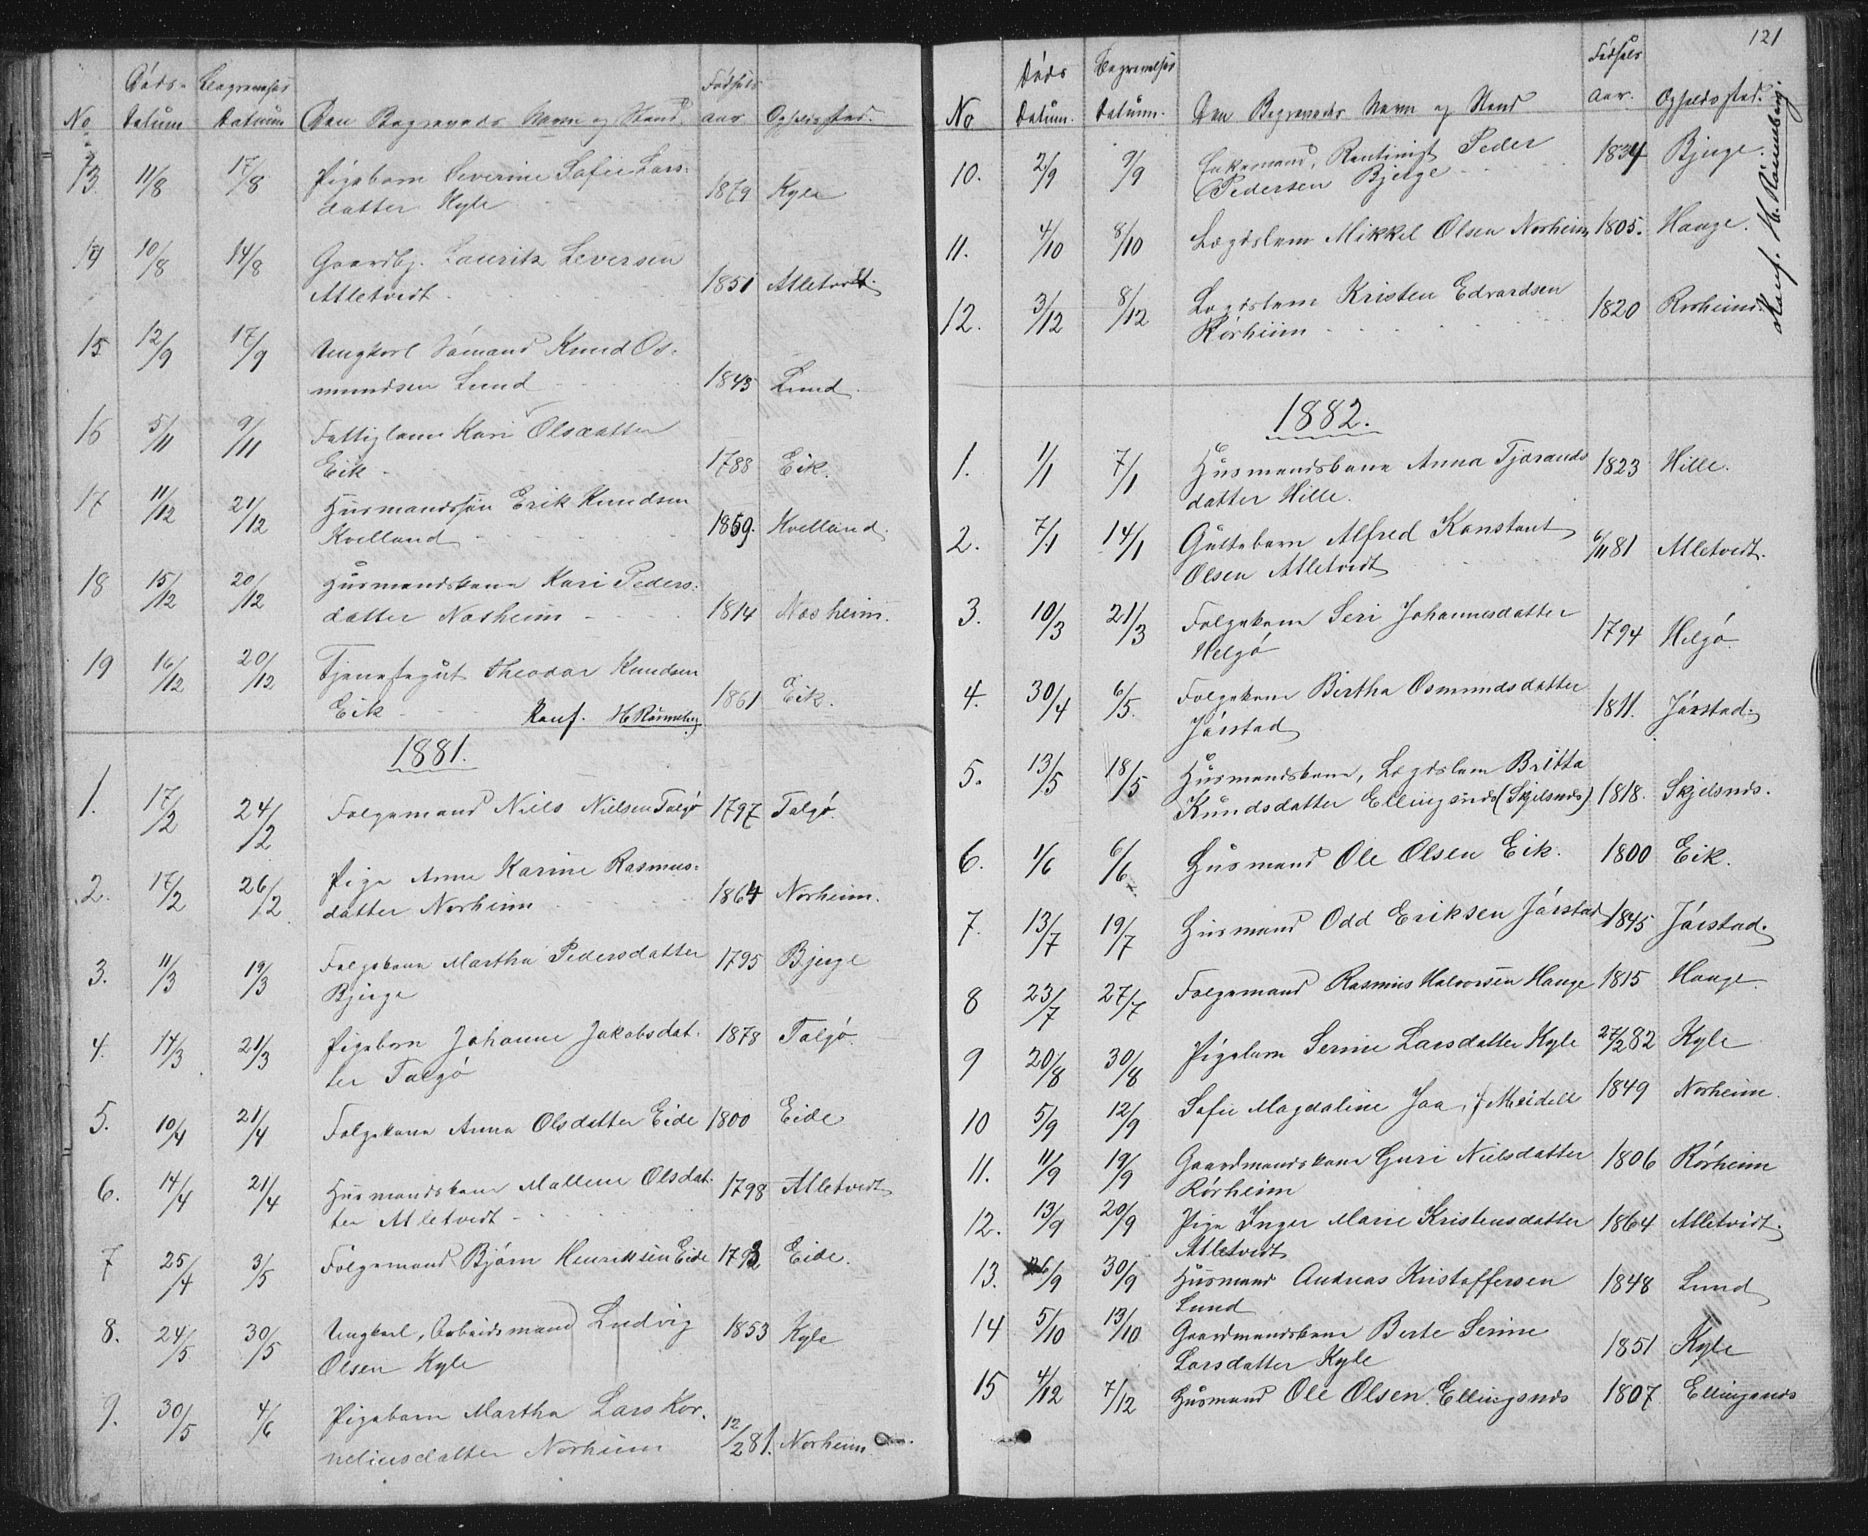 No Døds-Datum Begravelses Datum Den Begravedes Navn og Stand. Fødsels aar Opholdssted.
13. 11/8 17/8 Pigebarn Severine Sofie Lars-
datter Kyle 1879 Kyle
14 10/8 14/8 Gaardbg. Lauritz Seversen
Atletvedt 1851 Atletvedt.
15 12/9 17/9 Ungkarl Sømand Knud Os-
mundsen Lund 1843 Lund.
16 5/11 9/11 Fattiglem Kari Olsdatter
Eik 1788 Eik.
17 11/12 21/12 Husmandssøn Erik Knudsen
Kvelland 1859. Kvelland.
18 15/12 20/12 Husmandskone Kari Peders-
datter Nosheim 1814 Nosheim.
19 16/12 20/12 Tjenestegut Theodor Knudsen
Eik 1861 Eik.
Konf. H. Rønneberg
1881.
1. 17/2 24/2 Folgemand Niels Nielsen Talgø 1797 Talgø.
2. 17/2 26/2 Pige Anne Karine Rasmus-
datter Norheim 1864 Norheim.
3. 11/3 19/3 Folgekone Martha Pedersdatter 1795 Bjerge
Bjerge
4. 14/3 21/3 Pigebarn Johanne Jakobsdat- 1878 Talgø.
ter Talgø
5. 10/4 21/4 Folgekone Anna Olsdatter Eide 1800 Eide
6. 14/4 21/4 Husmandskone Mallene Olsdat- 1798 Atletvedt
ter Atletvedt
7 25/4 3/5 Folgemand Bjørn Henriksen Eide 1793 Eide.
8. 24/5 30/5 Ungkarl, Arbeidsmand Ludvig 1853 Kyle
Olsen Kyle
9. 30/5 4/6 Pigebarn Martha Lars Kor-
neliusdatter Norheim 12/2 81. Norheim
121
No Døds Datum. Begravelses Datum. Den Begravedes Navn og Stand Fødsels aar. Opholdssted.
10. 2/9 9/9 Enkemand, Rentenist Peder 1834 Bjerge.
Pedersen Bjerge
11. 4/10 8/10 Lægdslem Mikkel Olsen Norheim 1805. Hauge.
12. 3/12 8/12 Lægdslem Kristen Edvardsen 1820 Rørheim.
Rørheim
Konf. H. Rønneberg.
1882.
1. 1/1 7/1 Husmandskone Anna Tjerands 1823 Hille.
datter Hille.
2. 7/1 14/1 Guttebarn Alfred Konstant 6/11 81 Atletvedt.
Olsen Atletvedt
3. 10/3 21/3 Folgekone Seri Johannesdatter 1794 Helgø
Helgø
4. 30/4 6/5. Folgekone Bertha Osmundsdatter 1811. Jørstad.
Jørstad
5. 13/5 18/5 Husmandskone, Lægdslem Britta
Knudsdatter Ellingsnds (Skjelsnds) 1818. Skjelsnds.
6. 1/6 6/6 Husmand Ole Olsen Eik. 1800 Eik.
7. 13/7 19/7 Husmand Odd Eriksen Jørstad 1845 Jørstad.
8 23/7 27/7 Folgemand Rasmus Halvorsen Hauge 1815 Hauge
9 20/8 30/8 Pigebarn Serine Larsdatter Kyle 27/2 82 Kyle
10 5/9 12/9 Sofie Magdaline Jaa, f. Meidell 1849 Norheim.
11. 11/9 19/9 Gaardmandskone Guri Nielsdatter 1806 Rørheim
Rørheim
12. 13/9 20/9 Pige Inger Marie Kristensdatter 1864 Atletvedt.
Atletvedt
13. 26/9 30/9 Husmand Andreas Kristoffersen 1848 Lund
Lund
14 5/10 13/10 Gaardmandskone Berte Serine
Larsdatter Kyle 1851 Kyle
15 4/12 7/12 Husmand Ole Olsen Ellingsnds 1807 Ellingsnds